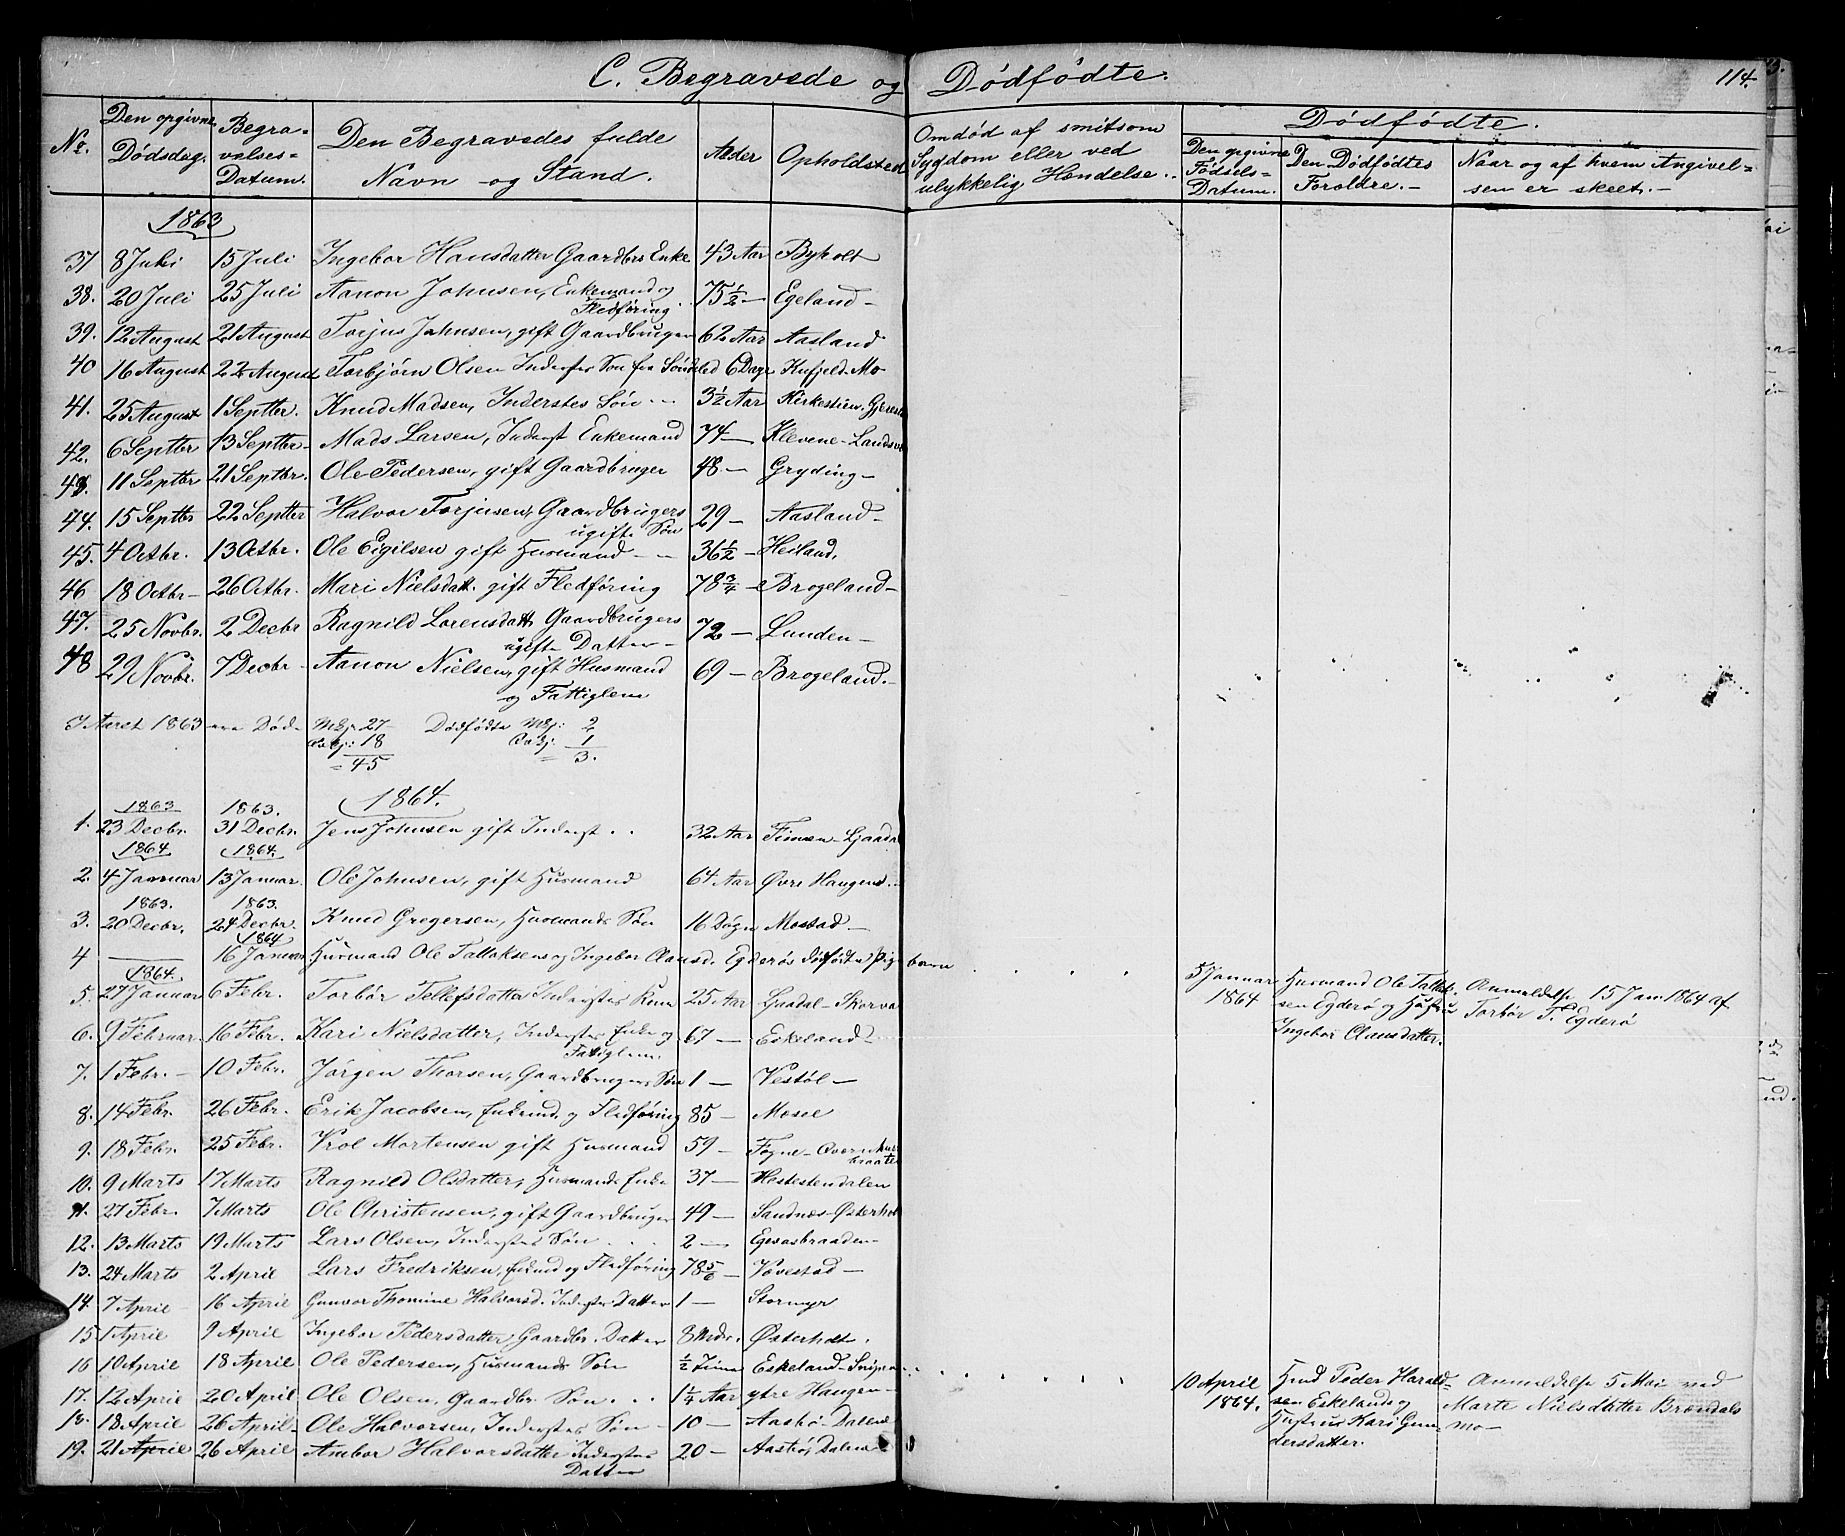 C. Begravede og Dødfødte.
114.
No. Den opgivne Dødsdag. Begravelses-Datum. Den Begravedes fulde Navn og Stand. Alder Opholdsted Omdød af smitsom Sygdom eller ved ulykkelig Hændelse. Dødfødte.
Den opgivne Fødsels-Datum. Den Dødfødtes Foroldre. Naar og af hvem Angivelsen er skeet.
1863
37 8 Juli 15 Juli Ingebor Hansdatter Gaardbrs Enke 43 Aar Byholt
38. 20 Juli 25 Juli Aanon Johnsen, Enkemand og Fledføring 75 1/2 - Egeland-
39. 12 August 21 August Torjus Johnsen, gift Gaardbruger 62 Aar Aasland
40 16 August 22 August Torbjörn Olsen Inderstes Søn fra Søndeled 6 Dage Mo
41. 25 August 1 Septbr. Knud Madsen, Inderstes Søn - 3 1/2 Aar
42. 6 Septbr 13 Septbr. Mads Larsen, Inderst Enkemand 74 - Klevene-
43. 11 Septbr 21 Septbr. Ole Pedersen, gift Gaardbruger 48 - Gryding-
44. 15 Septbr 22 Septbr Halvor Torjusen, Gaardbrugers ugifte Søn 29 - Aasland-
45. 4 Octbr. 13 Octbr. Ole Eigilsen gift Husmand - 36 1/2 - Heiland.
46 18 Octbr- 26 Octbr. Mari Nielsdatt. gift Fledføring 78 3/4 - Brogeland-
47. 25 Novbr. 2 Decbr Ragnild Lorensdatt. Gaardbrugers ugifte Datter- 72 - Lunden-
48 29 Novbr. 7 Decbr - Aanon Nielsen, gift Husmand og Fattiglem 69 - Brogeland.-
I Aaret 1863 ere Død- Mkj. 27 Dødfødte Mkj: 2
Qvkj: 18 Qvkj. 1
= 45 = 3.
1864.
1863 1863.
1. 23 Decbr. 31 Decbr. Jens Johnsen gift Inderst 32 Aar
1864 1864.
2. 4 Januar 13 Januar. Ole Johnsen, gift Husmand 64 Aar Øvre Haugen
1863. 1863.
3. 20 Decbr. 24 Decbr. Knud Gregersen, Husmands Søn 16 Døgn Mostad-
1864
4 - 16 Januar. Husmand Ole Tallaksens og Ingebor Clausd. Egderøs dødfødte Pigebarn 5 Januar 1864 Husmand Ole Tallaksen Egderø og Hustru Ingebor Clausdatter. Anmeldelse 15 Jan 1864 af Torbor T. Egderö
1864.
5. 27 Januar 6 Febr. Torbör Tellefsdatter Inderstes Kone 25 Aar
6. 9 Februar 16 Febr. Kari Nielsdatter, Inderstes Enke og Fattiglem. 67 - Eskeland-
7. 1 Febr. - 10 Febr. Jørgen Thorsen, Gaardbrugers Søn 1 - Vestøl-
8. 14 Febr. 26 Febr. Erik Jacobsen, Enkemd. og Fledføring 85 - Mosee
9. 18 Febr. 25 Febr. Vrol Mortensen gift Husmand 59 - Fogne-
10. 9 Marts 17 Marts Ragnild Olsdatter, Husmands Enke 37 - Hestestendalen
11. 27 Febr. 7 Marts Ole Christensen, gift Gaardbruger 49 - Sandnæs-Østerholt
12. 13 Marts 19 Marts Lars Olsen, Inderstes Søn 2 - Egesasbraaden-
13. 24 Marts 2 April Lars Fredriksen, Enkmd og Fledføring 78 5/6 - Vovestad-
14. 7 April - 16 April Gunvor Thomine Halvorsd. Inderstes Datter 1 - Stormyr
15 1 April 9 April Ingebor Pedersdatter, Gaardbr. Datter 8 Mdr. Østerholt.
16 10 April 18 April. Ole Pedersen, Husmands Søn 1/2 Time Eskeland- 10 April 1864. Hmd Peder Haraldsen Eskeland og Hustrue Kari Gundersdatter. Anmeldelse 5 Mai ved Marte Nielsdatter Brændals mo-
17. 12 April 20 April. Ole Olsen, Gaardbr. Søn 1 1/4 Aar ytre Haugen-
18. 18 April 26 April. Ole Halvorsen, Inderstes Søn - 10 - Aasbø-Dalene
19. 21 April 26 April Anbor Halvorsdatter Inderstes Datter 20 - Aasbø, Dalene